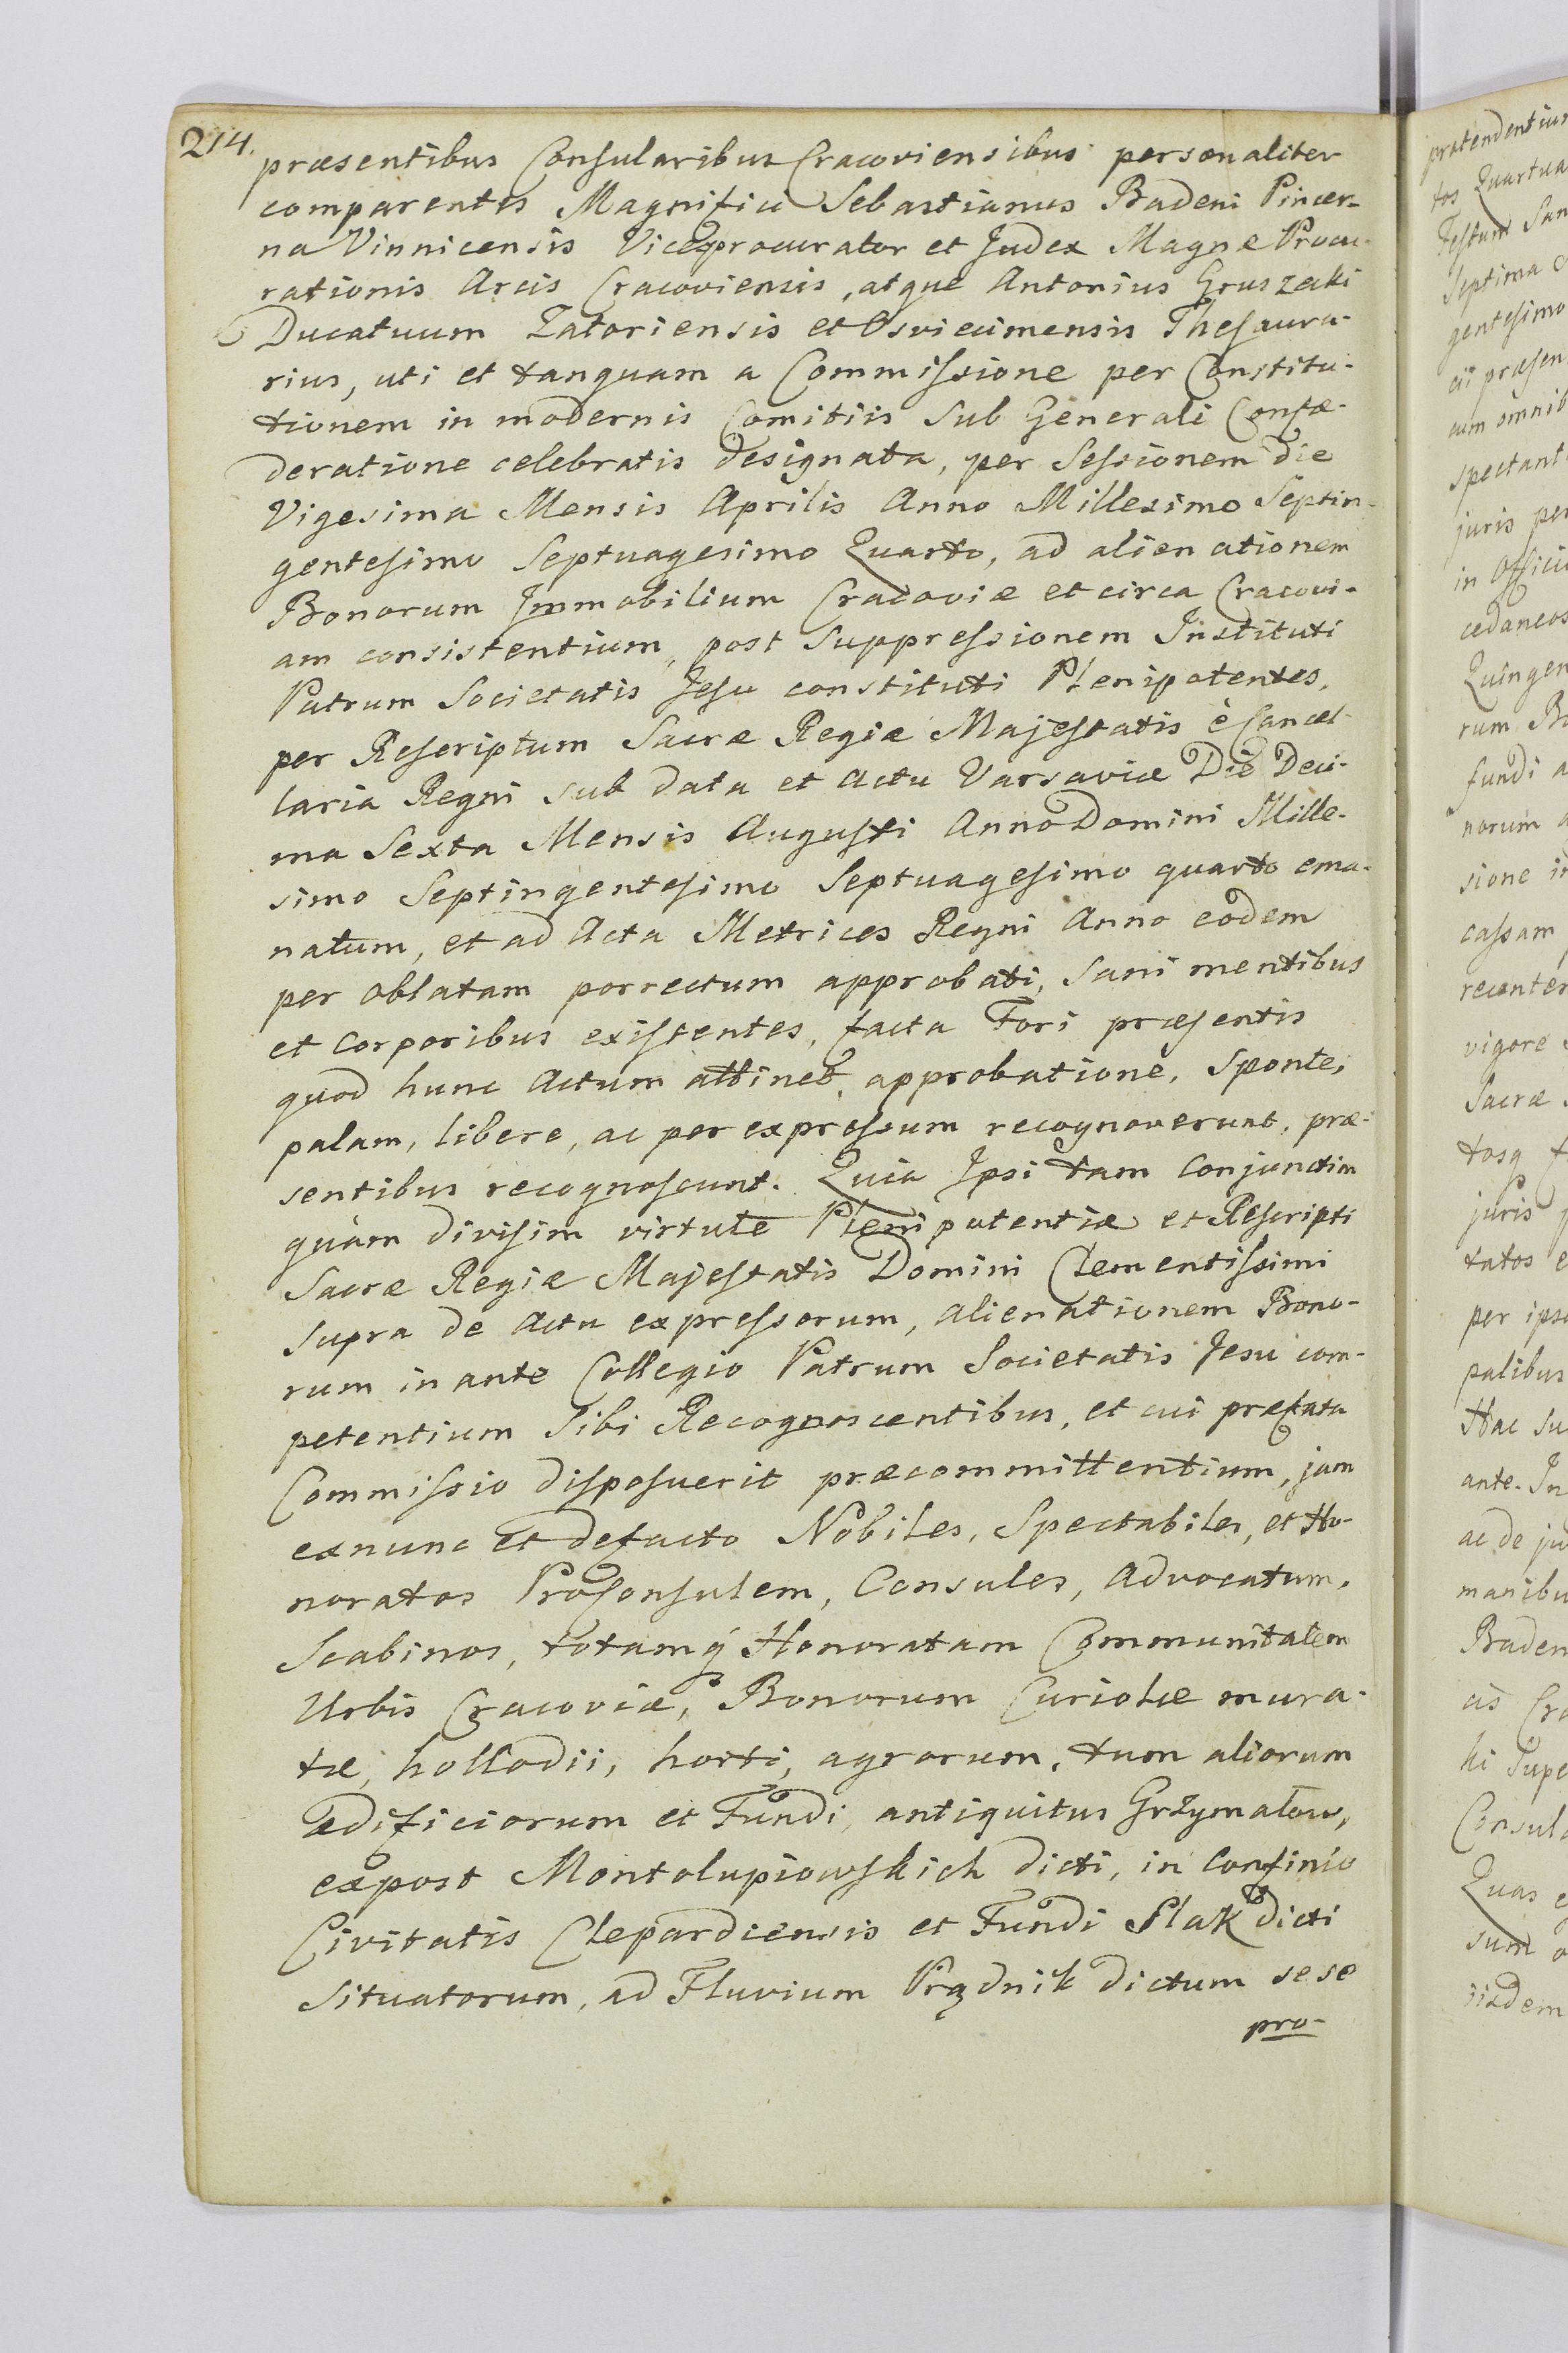 214.
præsentibus Consularibus Cracoviensibus personaliter
comparentes Magnifici Sebastianus Badeni Pincer-
na Vinnicensis Viceprocurator et Judex Magnæ Procu-
rationis Arcis Cracoviensis, atque Antonius Gruszecki
Ducatuum Zatoriensis et Osviecimensis Thesaura-
rius, uti et tanquam a Commissione per Constitu-
tionem in modernis Comitiis sub Generali Confæ-
deratione celebratis designata, per Sessionem die
Vigesima Mensis Aprilis Anno Millesimo Septin-
gentesimo Septuagesimo Quarto, ad alienationem
Bonorum Immobilium Cracoviæ et circa Cracovi-
am consistentium, post Suppressionem Instituti
Patrum Societatis Jesu constituti Plenipotentes,
per Rescriptum Sacræ Regiæ Majestatis è Cancel-
laria Regni sub data et actu Varsaviæ Die Deci-
ma Sexta Mensis Augusti Anno Domini Mille-
simo Septingentesimo Septuagesimo quarto ema-
natum, et ad Acta Metrices Regni Anno eodem
per oblatam porrectum approbati, sani mentibus
et Corporibus existentes, facta Fori præsentis
quod hunc Actum attinet, approbatione, sponte,
palam, libere, ac per expressum recognoverunt, præ-
sentibus recognoscunt. Quia Ipsi tam Conjunctim
quàm divisim virtute Plenipotentiæ et Rescripti
Sacræ Regiæ Majestatis Domini Clementissimi
supra de Actu expressorum, alienationem Bono-
rum in ante Collegio Patrum Societatis Jesu com-
petentium Sibi Recognoscentibus, et cui præfata
Commissio disposuerit præcommittentium, jam
exnunc et defacto Nobiles, Spectabiles, et Ho-
noratos ProConsulem, Consules, Advocatum,
Scabinos, totamq́ Honoratam Communitatem
Urbis Cracoviæ, Bonorum Curiolæ mura-
tæ, hollodii, horti, agrorum, tum aliorum
ædificiorum et Fundi antiquitus Grzymałow,
expost Montolupiowskich dicti, in Confinio
Civitatis Clepardiensis et Fundi Szlak dicti
situatorum, ad Fluvium Prądnik dictum sese
pro-
prætendentium
tos Quartua
Festum San
Septima
gentesimo
cii præsen
cum omnib
spectant
juris per
in Offici
cedaneos
Quingen
rum Bo
fundi a
norum
sione in
cassam
recenter
vigore
Sacræ
tosq
juris
tatos e
per ips
palibus
Hac su
ante. In
ac de ju
manibu
Baden
cis Cra
ki Supe
Consula
Quas e
sum o
iisdem